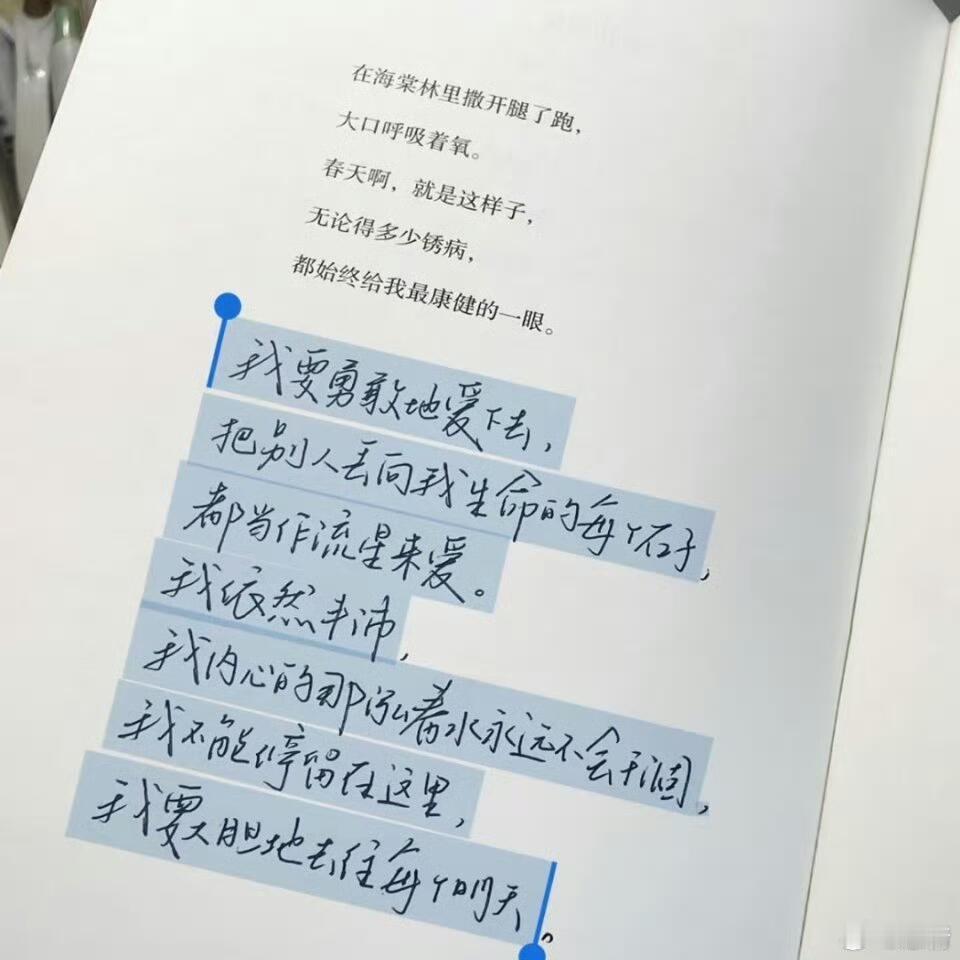 在海棠林里撒开腿了跑，
大口呼吸着氧。
春天啊，就是这样子，
无论得多少锈病，
都始终给我最康健的一眼。
我要勇敢地爱下去，
把别人丢向我生命的每个石子，
都当作流星来爱。
我依然丰沛，
我内心的那泓春水永远不会干涸，
我不能停留在这里，
我要大胆地去往每个明天。